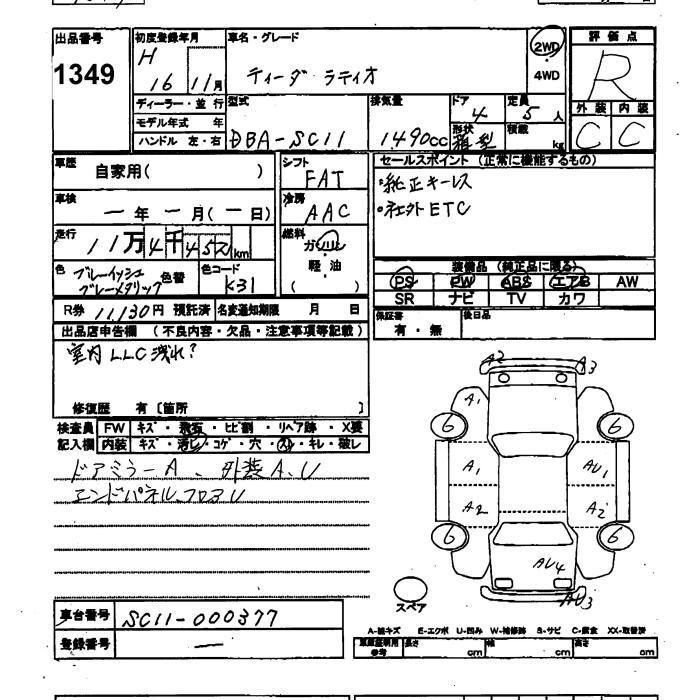 出品番号 初度登録年月 車名・グレード 評価点
1349 H 16 11月 ティーダ ラティオ 2WD・4WD R
ディーラー・並行 型式 排気量 ドア 4 定員 5人 外装 内装
モデル年式 年
ハンドル 左・右 DBA-SC11 1490cc 形状 箱型 積載 kg C C
車歴 自家用( ) シフト FAT セールスポイント (正常に機能するもの)
・純正キーレス
車検 ー年 ー月(ー日) 冷房 AAC ・社外ETC
走行 11万4千452km 燃料 ガソリン
軽油
( )
装備品 (純正品に限る)
色 ブルーイッシュ 色替 色コード K31 PS PW ABS エアB AW
グレーメタリック SR ナビ TV カワ
R券 11,130円 預託済 名変通知期限 月 日 保証書 有・無 後日品
出品店申告欄 (不良内容・欠品・注意事項等記載)
室内LLC洩れ?
修復歴 有〔箇所 〕
検査員 FW キズ・飛石・ヒビ割・リペア跡・X要
記入欄 内装 キズ・汚レ・コゲ・穴・スレ・キレ・破レ
ドアミラーA、外装A、U
エンドパネル、フロアU
A2 A3
A1
6 6
A1 AU1
A2 A2
6 6
AU4
AU3
スペア
車台番号 SC11-000377
登録番号 ー
A-線キズ E-エクボ U-凹み W-補修跡 S-サビ C-腐食 XX-取替済
車庫証明用参考 長さ cm 幅 cm 高さ cm